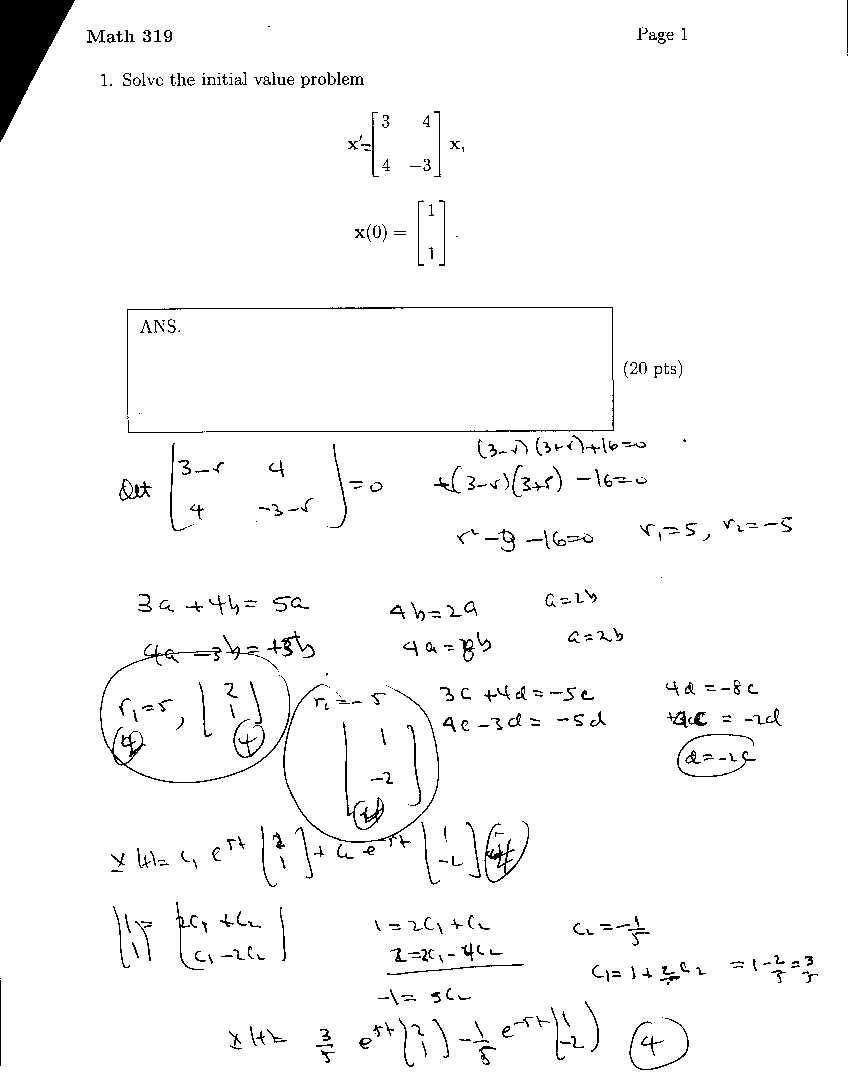 Math 319 Page 1
1. Solve the initial value problem
x' = [3 4; 4 −3] x,
x(0) = [1; 1].
ANS.
(20 pts)
(3−r)(3+r)+16=0
Det [3−r 4; 4 −3−r] = 0 +(3−r)(3+r) −16=0
r² −9 −16=0 r₁=5, r₂=−5
3a +4b = 5a 4b=2a a=2b
4a −3b = +5b 4a=8b a=2b
r₁=5, [2; 1] r₂=−5 [1; −2] 3c +4d = −5c 4d = −8c
4c −3d = −5d 4c = −2d
d=−2c
4 4 4
x(t)= c₁ e^5t [2; 1] + c₂ e^−5t [1; −2] 4
[1; 1] = [2c₁ + c₂; c₁ − 2c₂] 1=2c₁+c₂ c₂=−1/5
2=2c₁−4c₂
c₁=1+2c₂ =1−2/5=3/5
−1= 5c₂
x(t)= 3/5 e^5t (2; 1) −1/5 e^−5t (1; −2) 4